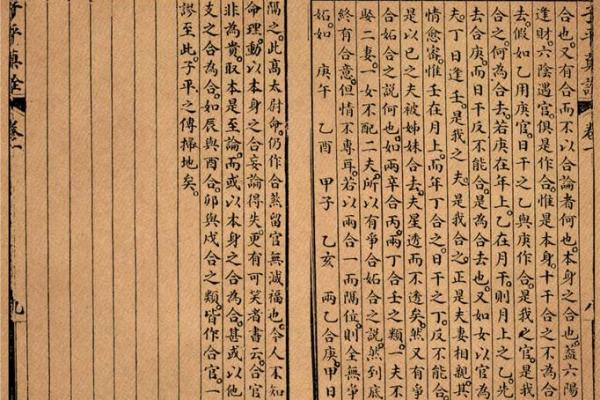 子平真詮 卷一 八
合也。又有合而不以合論者何也。本身之合也。蓋六陽
逢財。六陰遇官。俱是作合。惟是本身。十干合之不為合
去。假如乙用庚官。日干之乙與庚作合。是我之官。是我
合之。何為合去。若庚在年上。乙在月干。則月上之乙先
去合庚。而日干反不能合。是為合去也。又如女以官為
夫。丁日逢壬。是我之夫。是我合之。正是夫妻相親。其
情愈審。惟壬在月上。而年丁合之。日干之丁。反不能合。
是以己之夫被姊妹合去。夫星透而不透矣。然又有爭
合妬合之說。何也。如兩辛合丙。兩丁合壬之類。一夫不
娶二妻。一女不配二夫。所以有爭合妬合之說。然到底
終有合意。但情不專耳。若以兩合一而隔位。則全無爭
妬。如 庚午 乙酉 甲子 乙亥 兩乙合庚。甲日
隔之。此高太尉命。仍作合煞留官。無減福也。今人不知
命理。動以本身之合。妄論得失。更有可笑者。書云。合官
非為貴。取本是至論。而或以本身之合為合。甚或以他
支之合為合。如辰與酉合。卯與戌合之類。皆作合官。一
謬至此。子平之傳掃地矣。
子平真詮 卷一 九